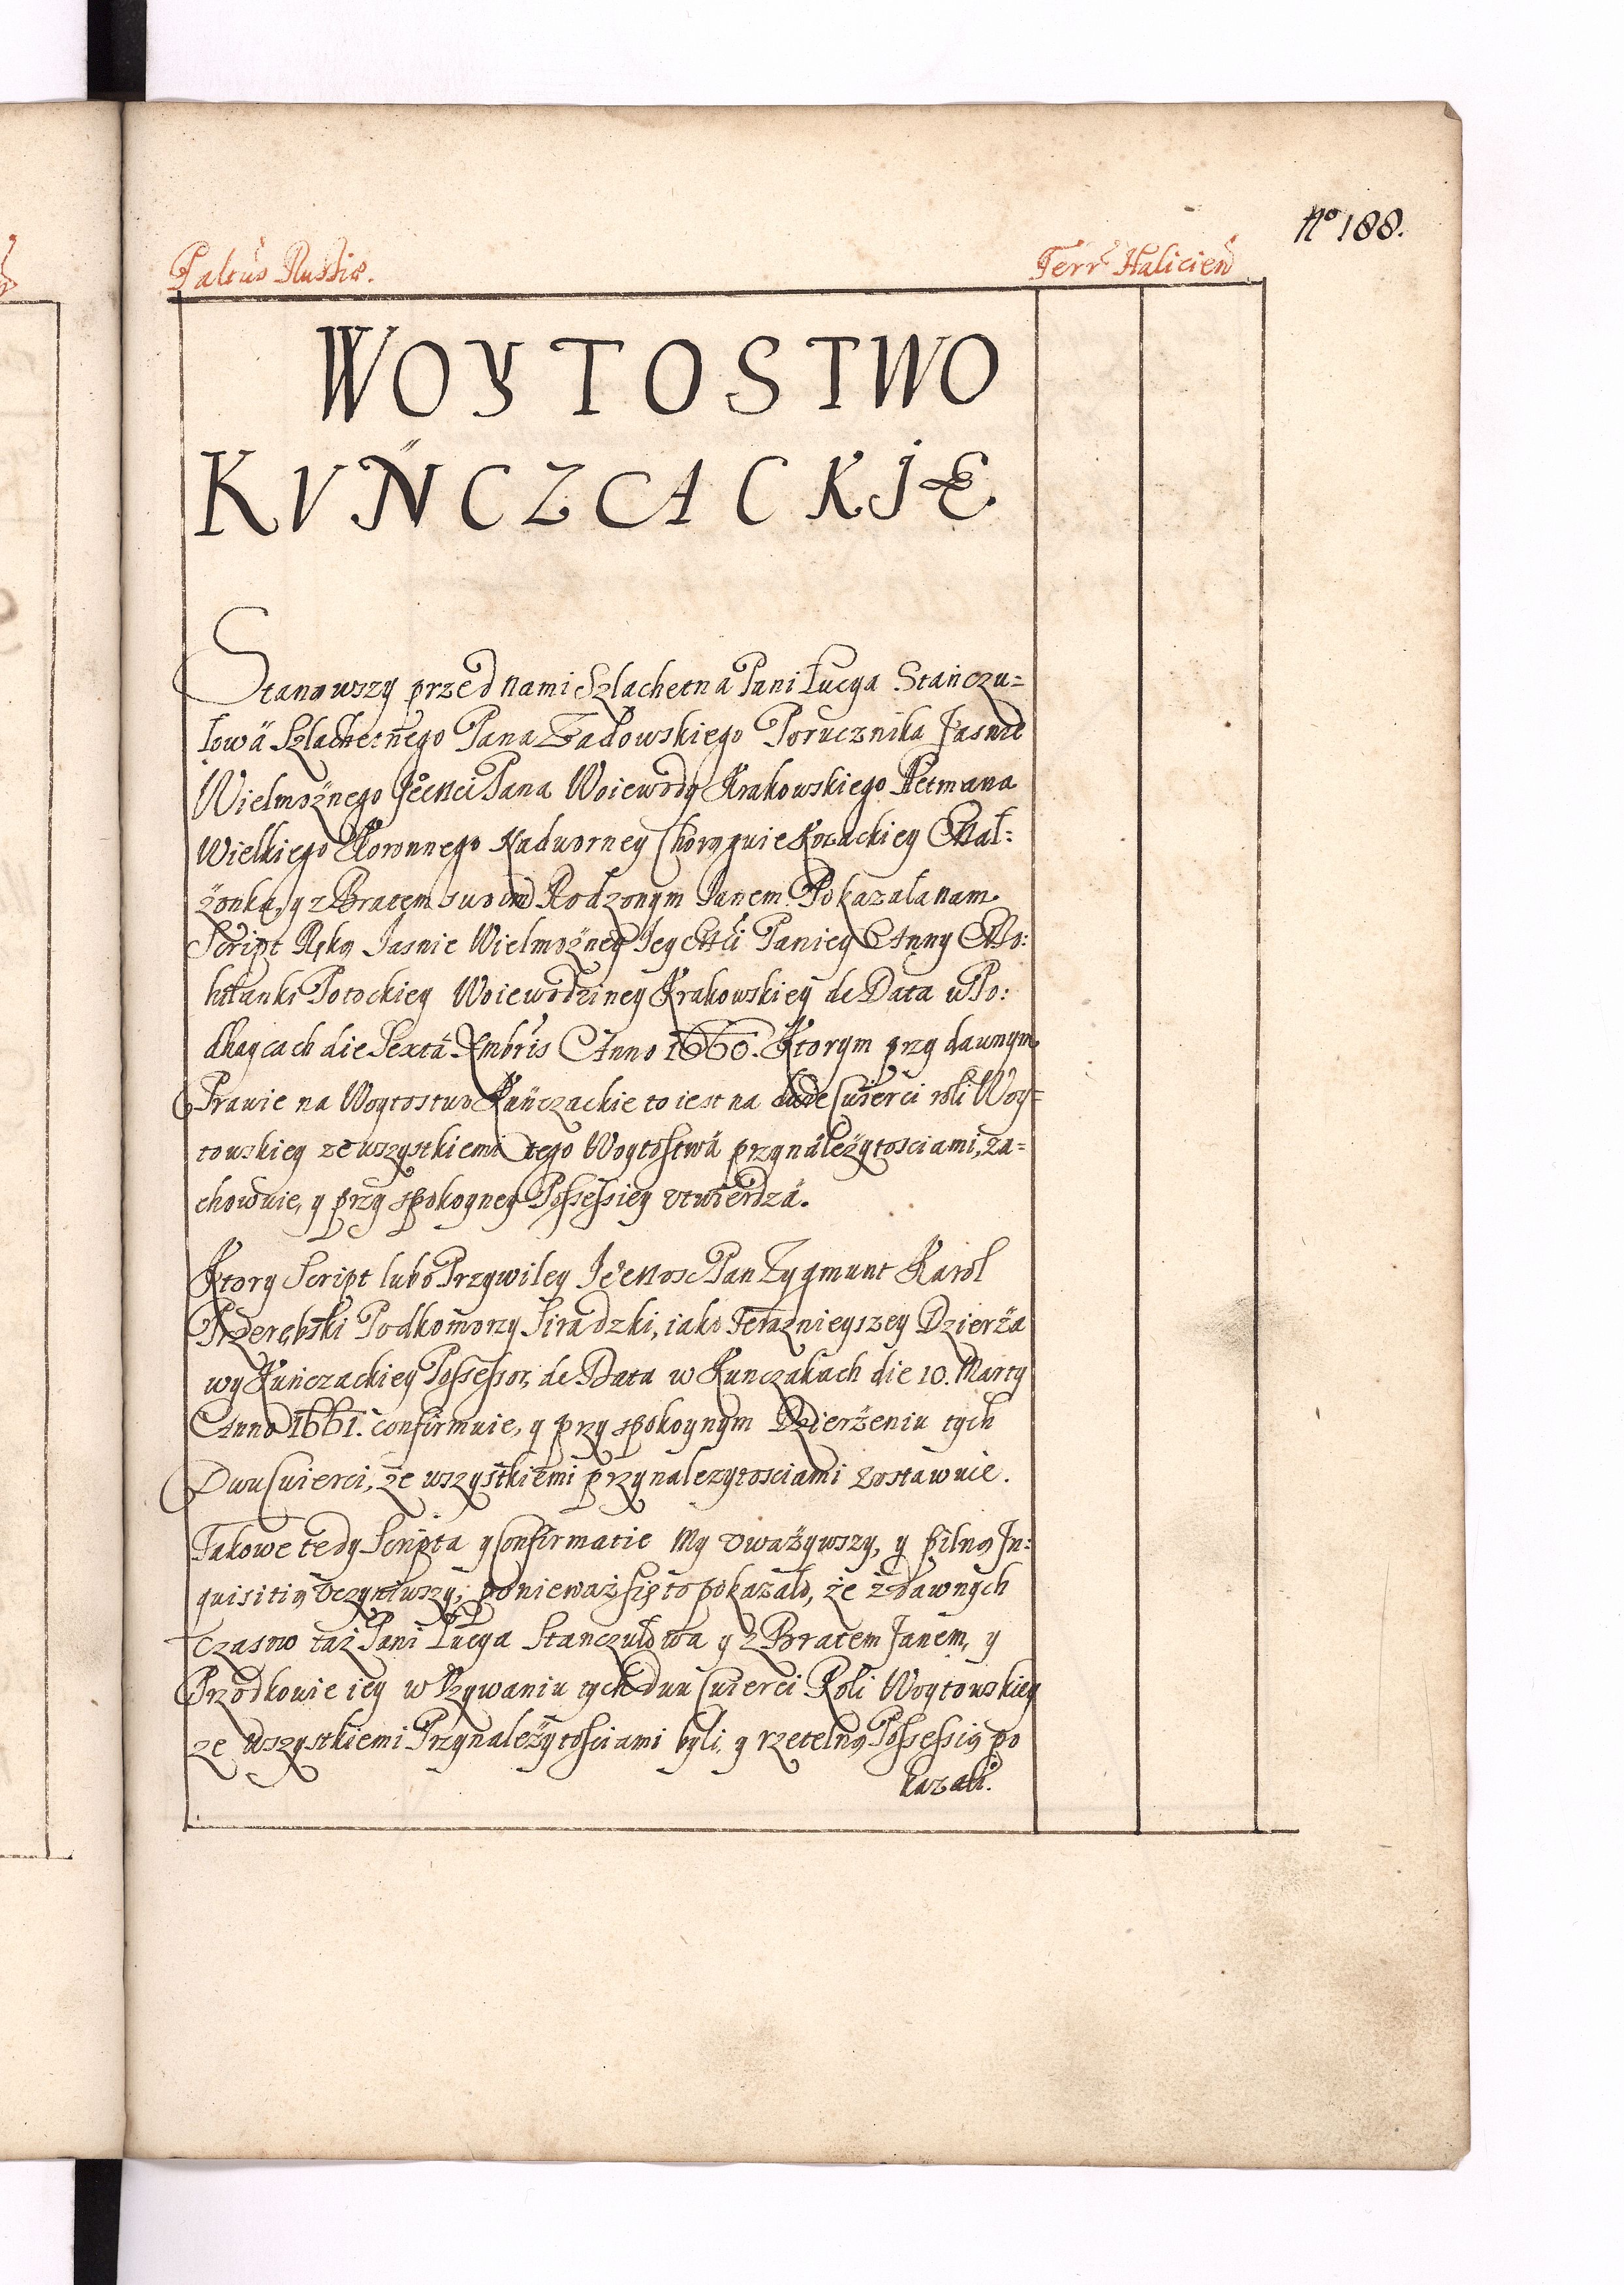 No 188.
Palťus Russiæ. Terræ Halicień
WOYTOSTWO
KVŃCZCACKIE.
Stanąwszy przed nami Szlachetna Pani Łucya Stańczu=
łowa Szlachetnego Pana Zadowskiego Porucznika Jasnie
Wielmożnego Pana Woiewody Krakowskiego Hetmana
Wielkiego Koronnego Nadworney Chorągwie Kozackiey Mał:
żonka, y z Bratem swoim Rodzonym Janem Pokazała nam
Script Ręką Jasnie Wielmożney Jey Mći Paniey Anny Mo:
hiłanki Potockiey Woiewodziney Krakowskiey de Data w Po:
dhaycach die Sexta Xmbris Anno 1660. Ktorym przy dawnym
Prawie na Woytostwo Kuńczackie to iest na dwie Cwierci roli Woy=
towskiey ze wszystkiemi tego Woytostwa przynależytosciami, za=
chowuie, y przy spokoyney Possessiey utwierdza.
Ktory Script lubo Przywiley Jeo Mosc Pan Zygmunt Karol
Przerębski Podkomorzy Siradzki, iako Teraznieyszey Dzierża
wy Kuńczackiey Possessor, de Data w Kunczakach die 10. Marty
Anno 1661. confirmuie, y przy spokoynym Dzierżeniu tych
Dwu Cwierci, ze wszystkiemi przynalezytosciami zostawuie.
Takowe tedy Scripta y Confirmatie My uważywszy, y pilną In:
quisitią uczyniwszy; ponieważ się to pokazało, że z dawnych
czasow taż Pani Łucya Stanczułowa y z Bratem Janem, y
Przodkowie iey w Vzywaniu tych dwu Cwierci Roli Woytowskiey
ze wszystkiemi Przynależytosciami byli, y rzetelną Possessią po
kazali.